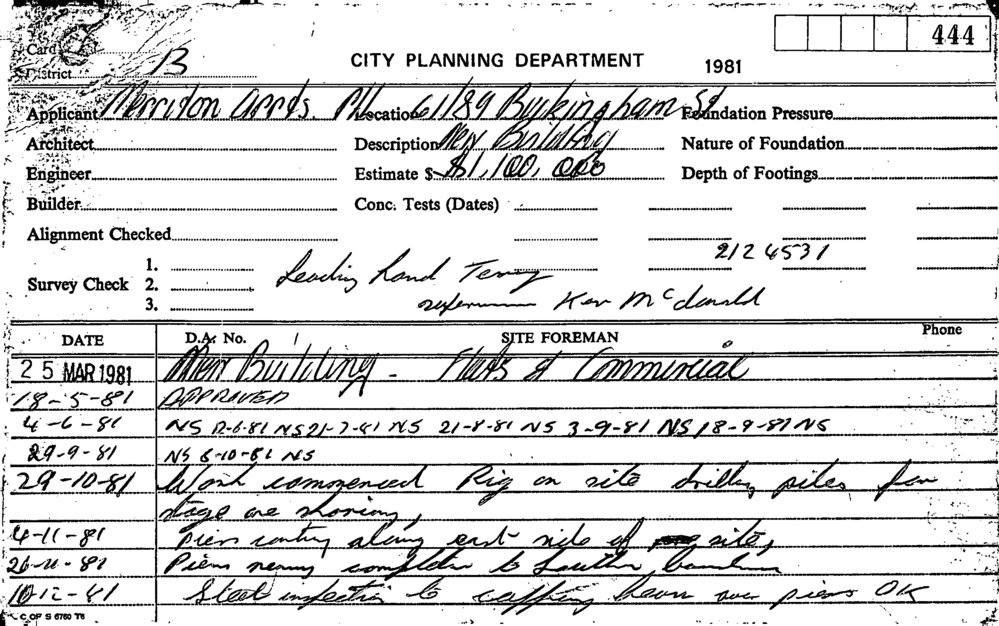 444
Card
District B CITY PLANNING DEPARTMENT 1981
Applicant Merriton Location 61/89 Buckingham St Foundation Pressure
Architect Description New Building Nature of Foundation
Engineer Estimate $ $1,100,000 Depth of Footings
Builder Conc. Tests (Dates)
Alignment Checked
212 4531
1.
Survey Check 2. Leading hand Terry
3. Ken McDonald
DATE D.A. No. SITE FOREMAN Phone
25 MAR 1981 New Building - Flats & Commercial
18-5-81 APPROVED
4-6-81 NS 12-6-81 NS 21-7-81 NS 21-8-81 NS 3-9-81 NS 18-9-81 NS
29-9-81 NS 8-10-81 NS
29-10-81 Work commenced Rig on site drilling piles for
stage one shoring,
4-11-81 Piers along east side of site,
26-11-81 Piers to
10-12-81 Steel inspection to capping beam over piers OK
C OF S 6760 T8